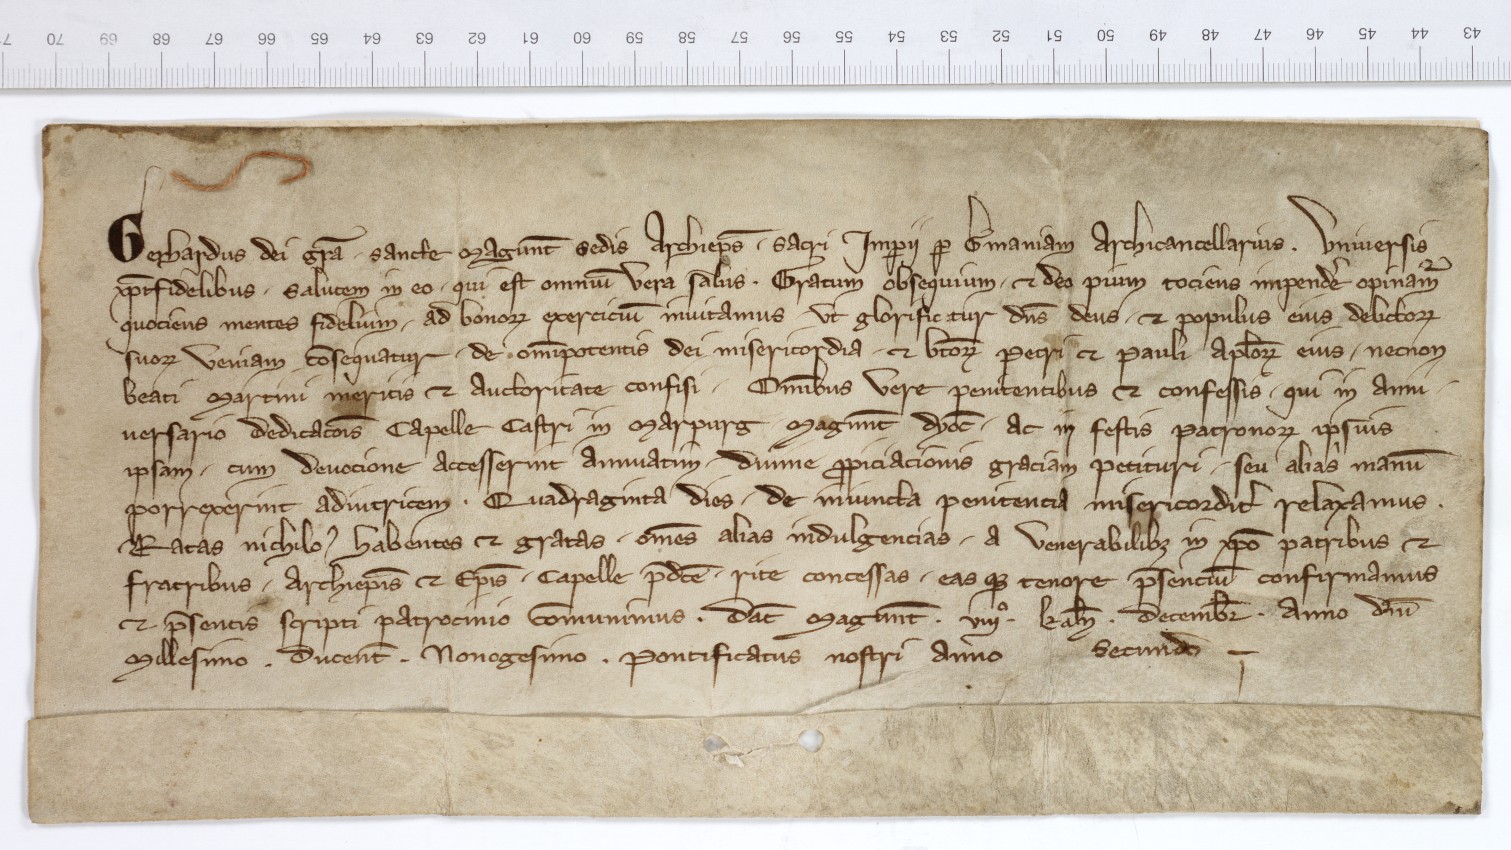 71 70 69 68 67 66 65 64 63 62 61 60 59 58 57 56 55 54 53 52 51 50 49 48 47 46 45 44 43
Gerhardus dei gra͞ . sancte Magunt͞ Sedis Archiep͞s . sacri Imp͞ij p̱ G͞maniam Archicancellarius . Vniuersis
xp͞ifidelibus . salutem in eo . qui est omniu͞ vera salus . Gratum obsequium . et deo pium tociens impendr͛e opinam᷑
quociens mentes fidelium . ad bonoꝝ exerciciu͞ inuitamus vt glorificetur dn͞s deus . et populus eius delictoꝝ
suoꝝ veniam co͞sequatur . de om͞ipotentis dei misericordia . et bt͞oꝝ petri et pauli apl͞oꝝ eius . necnon
beati Martini meritis et auctoritate confisi . Om͞ibus vere penitentibus et confessis . qui in anni
uersario dedicat͞ois Capelle Castri in Marpurg . Magunt͞ dyoc͞ . ac in festis patronoꝝ ipsius
ipsam . cum deuocione accesserint annuatim . diuine ꝓpiciacionis graciam petituri . seu alias manu͞
porrexerint adiutricem . Quadraginta dies . de iniuncta penitencia misericordit͛ relaxamus .
Ratas nichilo᷒ habentes et gratas . om͞es alias indulgencias . a venerabilibꝫ in xp͞o patribus et
fratribus . Archiep͞is et Ep͞is . Capelle p͞dc͞e . rite concessas . eas qꝫ tenore p͞senciu͞ confirmamus
et p͞sentis scripti patrocinio co͞munimus . dat͞ Magunt͞ . viijº . kal͞n . decembr͞ . Anno dn͞i
Millesimo . Ducent͞ . Nonogesimo . pontificatus nostri Anno Secundo